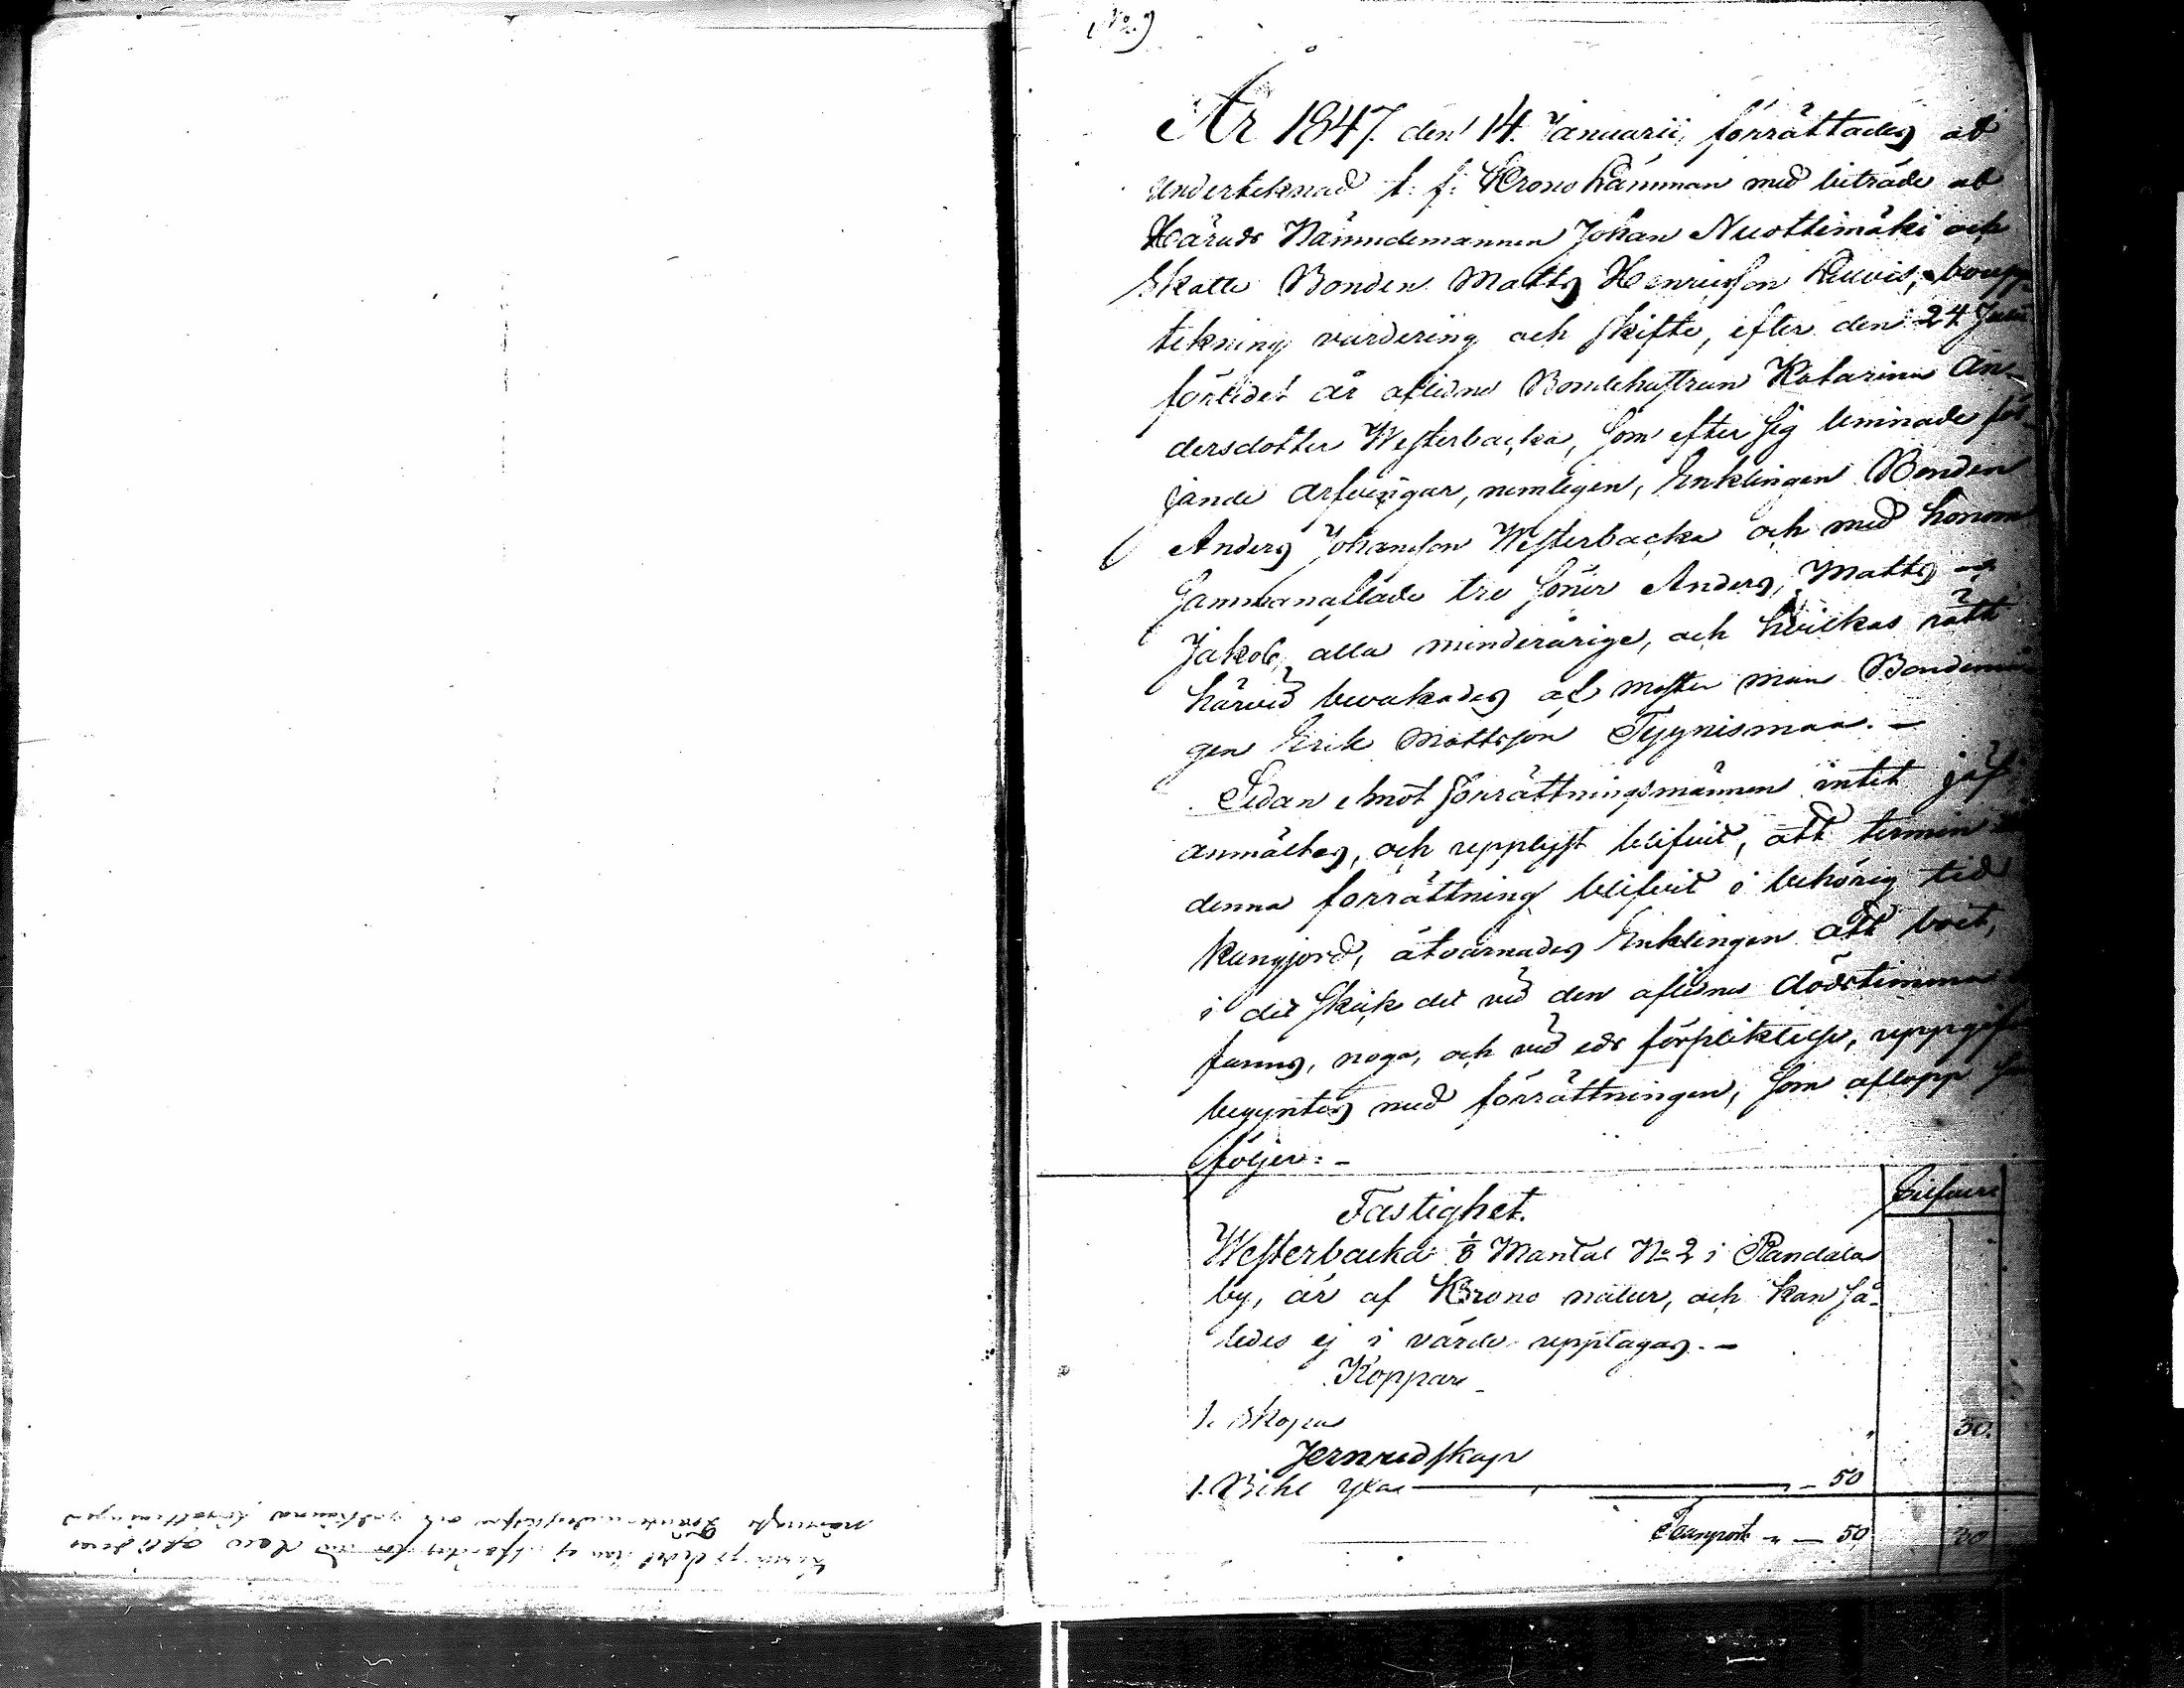 No 9
År 1847. den 14. Januarii, förrättades af
undertecknad t. f. Kronolänsman med biträde af
Härads Nämndemannen Johan Nuottimäki och
Skatte Bonden Matts Henricsson bouppteckning
tekning värdering och skifte, efter den 24 Julii
förledet år aflidne Bondehustrun Katarina An-
dersdotter Westerbacka, som efter sig lemnade föl-
jande arfvingar, nemligen, Enklingen Bonden
Anders Johansson Westerbacka och med honom
sammanaflade tre söner Anders, Matts och
Jakob, alla minderårige, och hvilkas rätt
härvid bevakades af man Bonden
gen Erik Mattsson Tyynismaa. -
Sedan emot förrättningsmännen intet jäf
anmältes, och upplyst blifvit, att termin
denna förrättning blifvit i behörig tid
kungjord, åtvarnades Enklingen att boet,
i det skick det vid den aflidnes dödstimma
fanns, noga, och vid eds förpliktelse, uppgifva
begyntes med förrättningen, som aflopp som
följer: -
Fastighet.
Silfver
Westerbacka 1/8 Mantal No 2 i Pandala
by, är af Krono natur, och kan så-
ledes ej i värde upptagas. -
Koppar
1. Skopa 30.
Jernredskap
1. Bihl yxa - 50
Transport " - 50 30